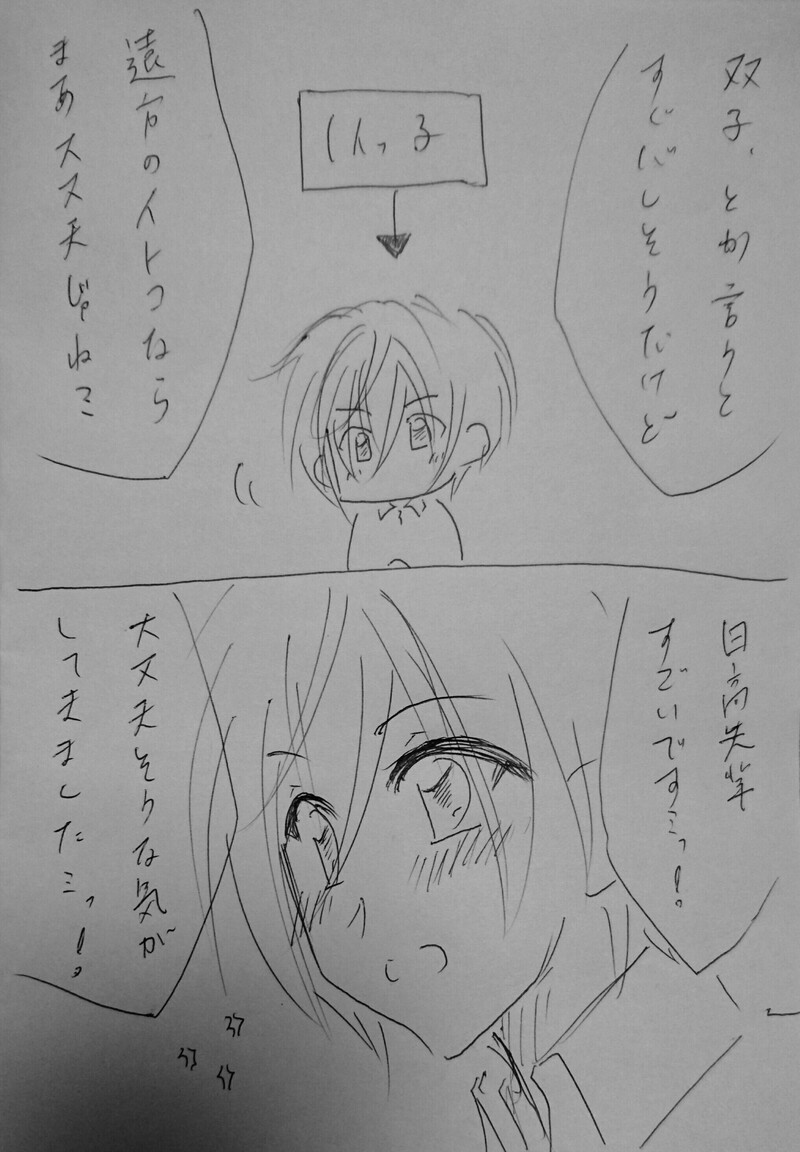 双子、とか言うと
すぐバレそうだけど
1人っ子
遠方のイトコなら
まあ大丈夫じゃね
日高先輩
すごいですっ!
大丈夫そうな気が
してきましたっ!